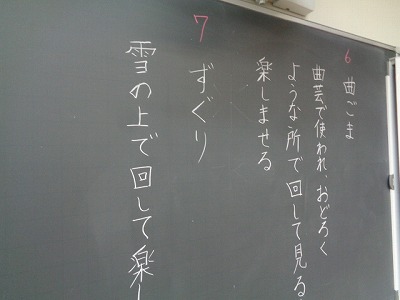 6 曲ごま
曲芸で使われ、おどろく
ような所で回して見る
楽しませる
7 ずぐり
雪の上で回して楽し